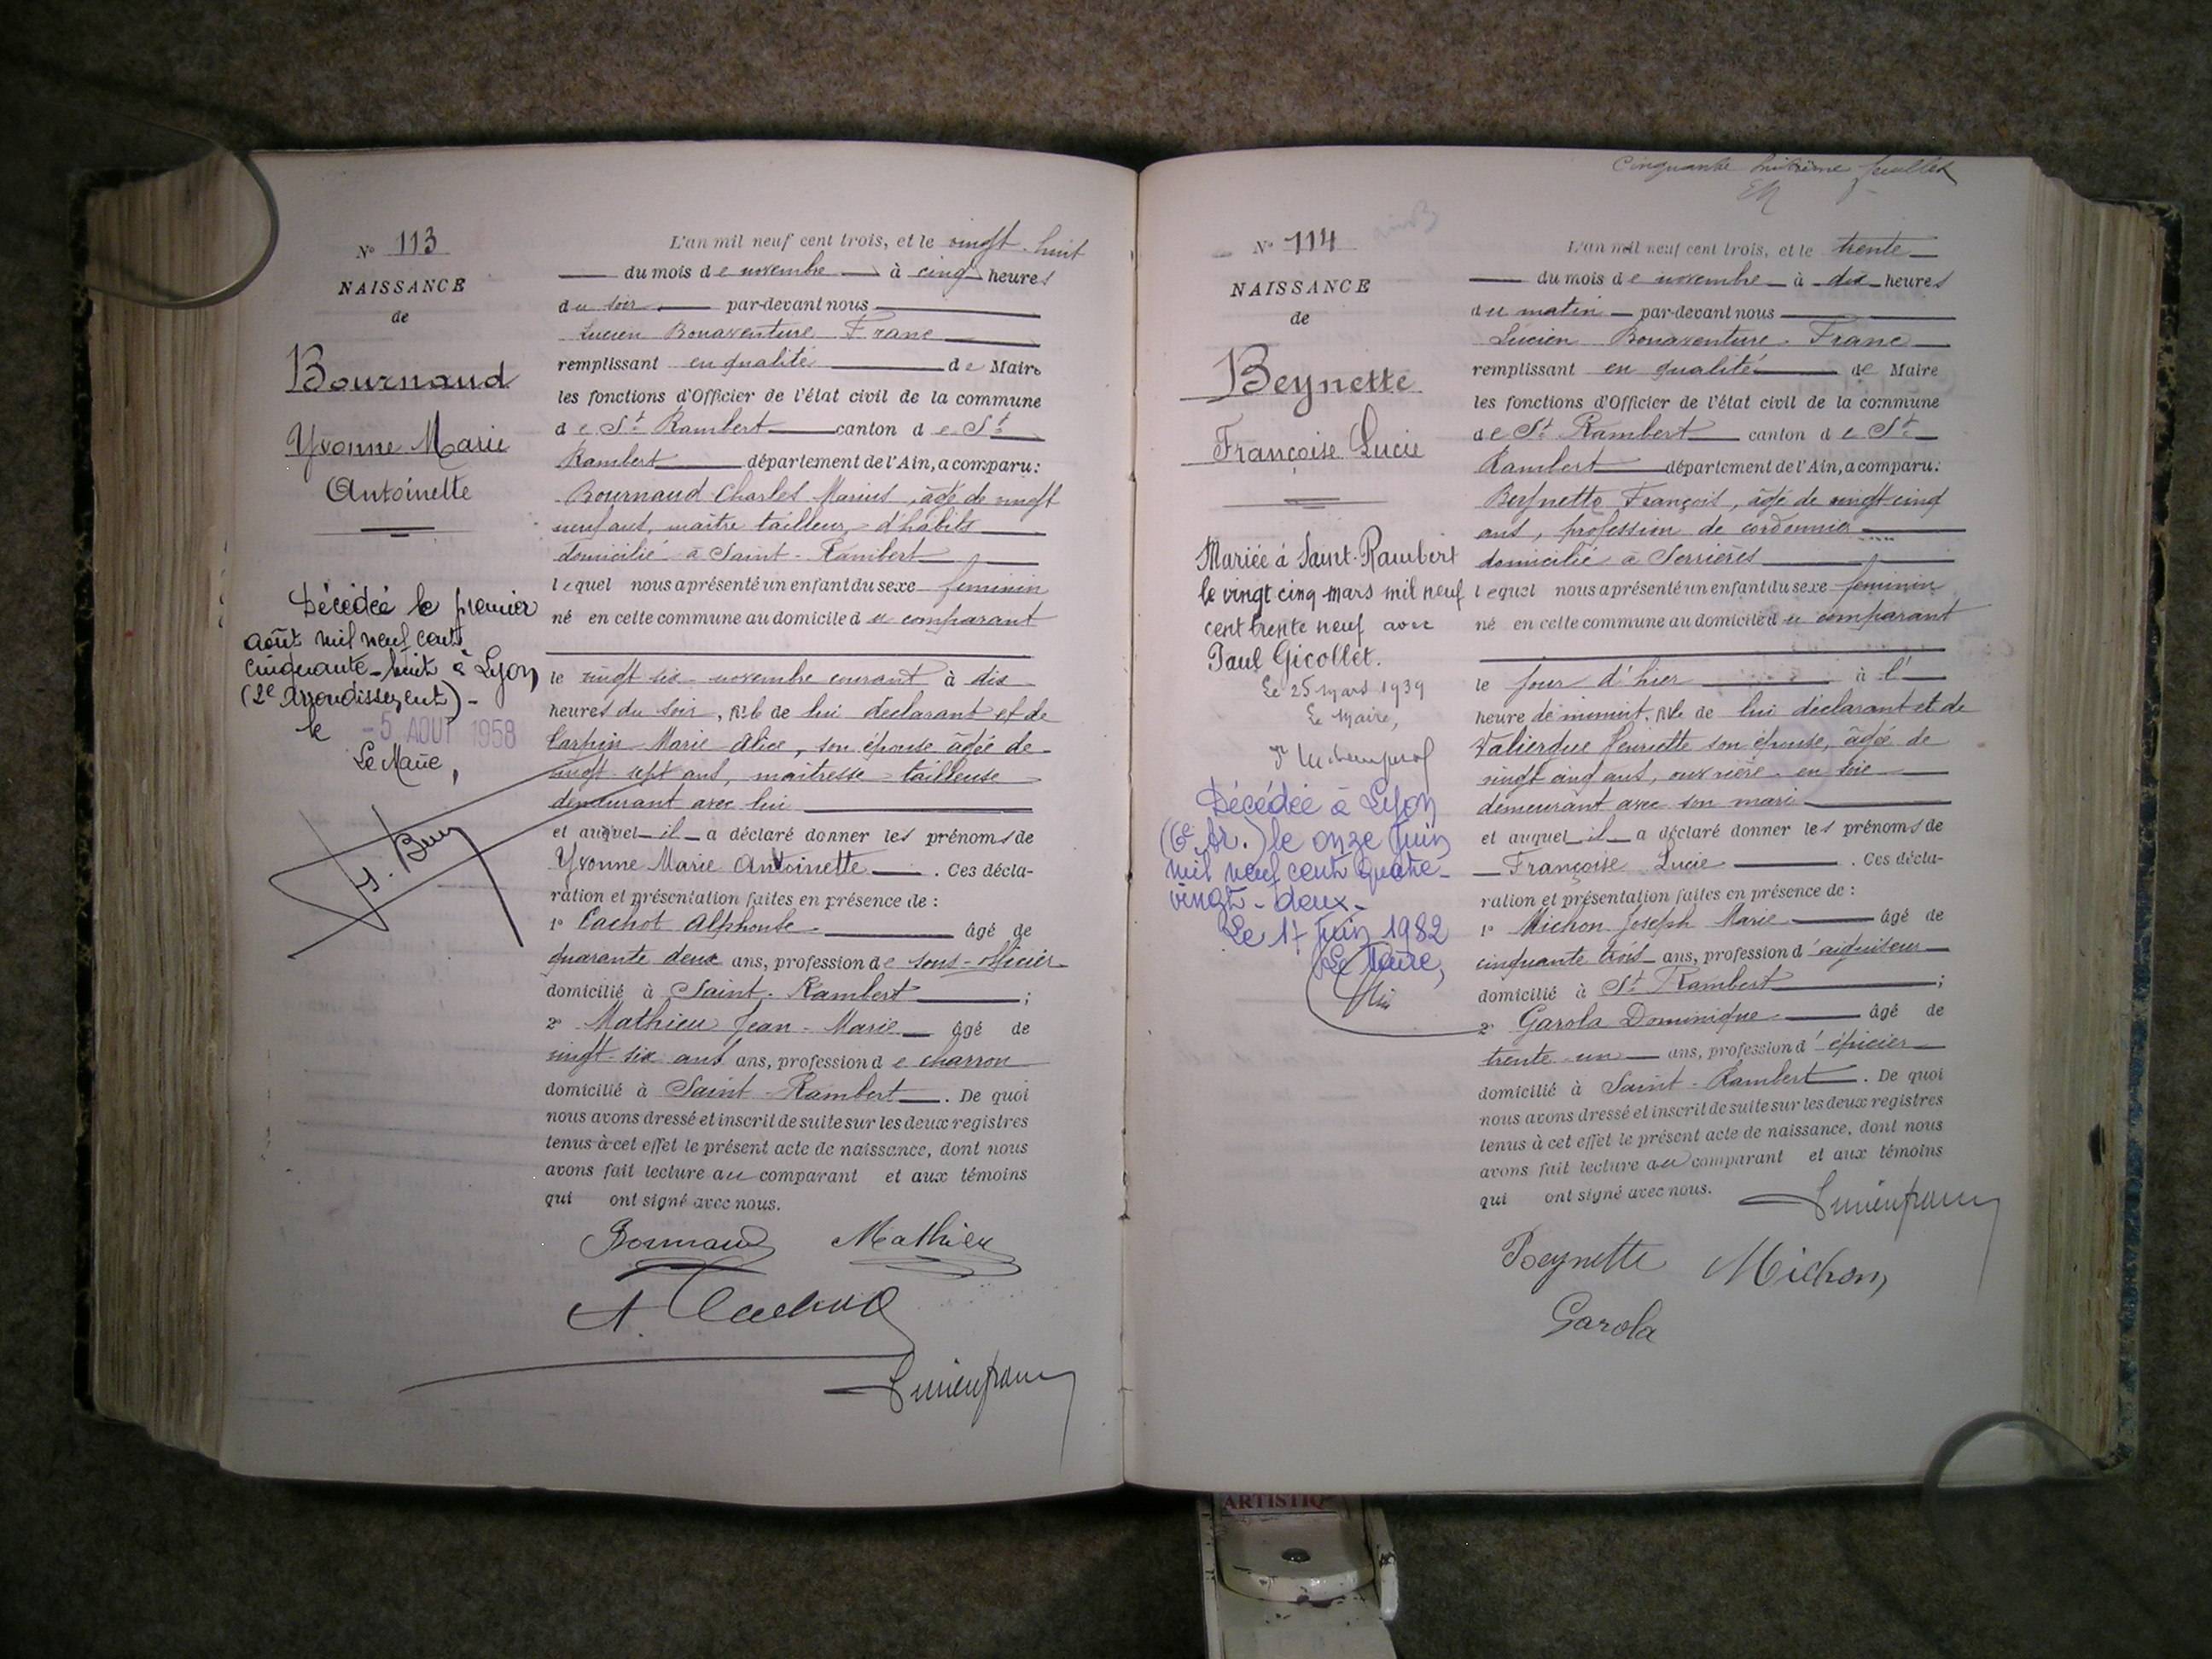 Nº 113
NAISSANCE
de
Bournaud
Yvonne Marie
Antoinette
Décédée le premier
août mil neuf cent
cinquante-huit à Lyon
(2e Arrondissement)-
le -5 AOUT 1958
Le Maire,
L'an mil neuf cent trois, et le vingt-huit
du mois de novembre à cinq heures
du soir par-devant nous
Lucien Bonaventure Franc
remplissant en qualité de Maire
les fonctions d'Officier de l'état civil de la commune
de St Rambert canton de St
Rambert département de l'Ain, a comparu:
Bournaud Charles Marius, âgé de vingt
neuf ans, maître tailleur d'habits
domicilié à Saint-Rambert
lequel nous a présenté un enfant du sexe feminin
né en cette commune au domicile du comparant
le vingt six novembre courant à dix
heures du soir, né de lui déclarant et de
Carpin Marie Alice, son épouse âgée de
vingt-sept ans, maitresse tailleuse
demeurant avec lui
et auquel il a déclaré donner les prénoms de
Yvonne Marie Antoinette. Ces décla-
ration et présentation faites en présence de :
1º Cachot Alphonse âgé de
quarante deux ans, profession de sous-officier
domicilié à Saint-Rambert ;
2º Mathieu Jean-Marie âgé de
vingt-six ans ans, profession de charron
domicilié à Saint-Rambert. De quoi
nous avons dressé et inscrit de suite sur les deux registres
tenus à cet effet le présent acte de naissance, dont nous
avons fait lecture au comparant et aux témoins
qui ont signé avec nous.
Bournaud Mathieu
A. Cachot
Lucien franc
Cinquante huitième feuillet
Nº 114
NAISSANCE
de
Beynette
Françoise Lucie
Mariée à Saint-Rambert
le vingt cinq mars mil neuf
cent trente neuf avec
Paul Gicollet.
Le 25 mars 1939
Le Maire,
Décédée à Lyon
(6e Ar.) le onze Juin
mil neuf cent quatre-
vingt-deux-
Le 17 Juin 1982
Le Maire,
L'an mil neuf cent trois, et le trente
du mois de novembre à dix heures
du matin par-devant nous
Lucien Bonaventure Franc
remplissant en qualité de Maire
les fonctions d'Officier de l'état civil de la commune
de St Rambert canton de St
Rambert département de l'Ain, a comparu:
Beynette François, âgé de vingt-cinq
ans, profession de cordonnier
domicilié à Serrieres
lequel nous a présenté un enfant du sexe feminin
né en cette commune au domicile du comparant
le jour d'hier à l'
heure de minuit, née de lui déclarant et de
Henriette son épouse, âgée de
vingt cinq ans, ouvrière en soie
demeurant avec son mari
et auquel il a déclaré donner les prénoms de
Françoise Lucie. Ces décla-
ration et présentation faites en présence de :
1º Michon Joseph Marie âgé de
cinquante trois ans, profession d'aiguiseur
domicilié à St Rambert ;
2º Garola Dominique âgé de
trente-un ans, profession d'épicier
domicilié à Saint-Rambert. De quoi
nous avons dressé et inscrit de suite sur les deux registres
tenus à cet effet le présent acte de naissance, dont nous
avons fait lecture au comparant et aux témoins
qui ont signé avec nous.
Lucien franc
Beynette Michon
Garola
ARTISTIQ